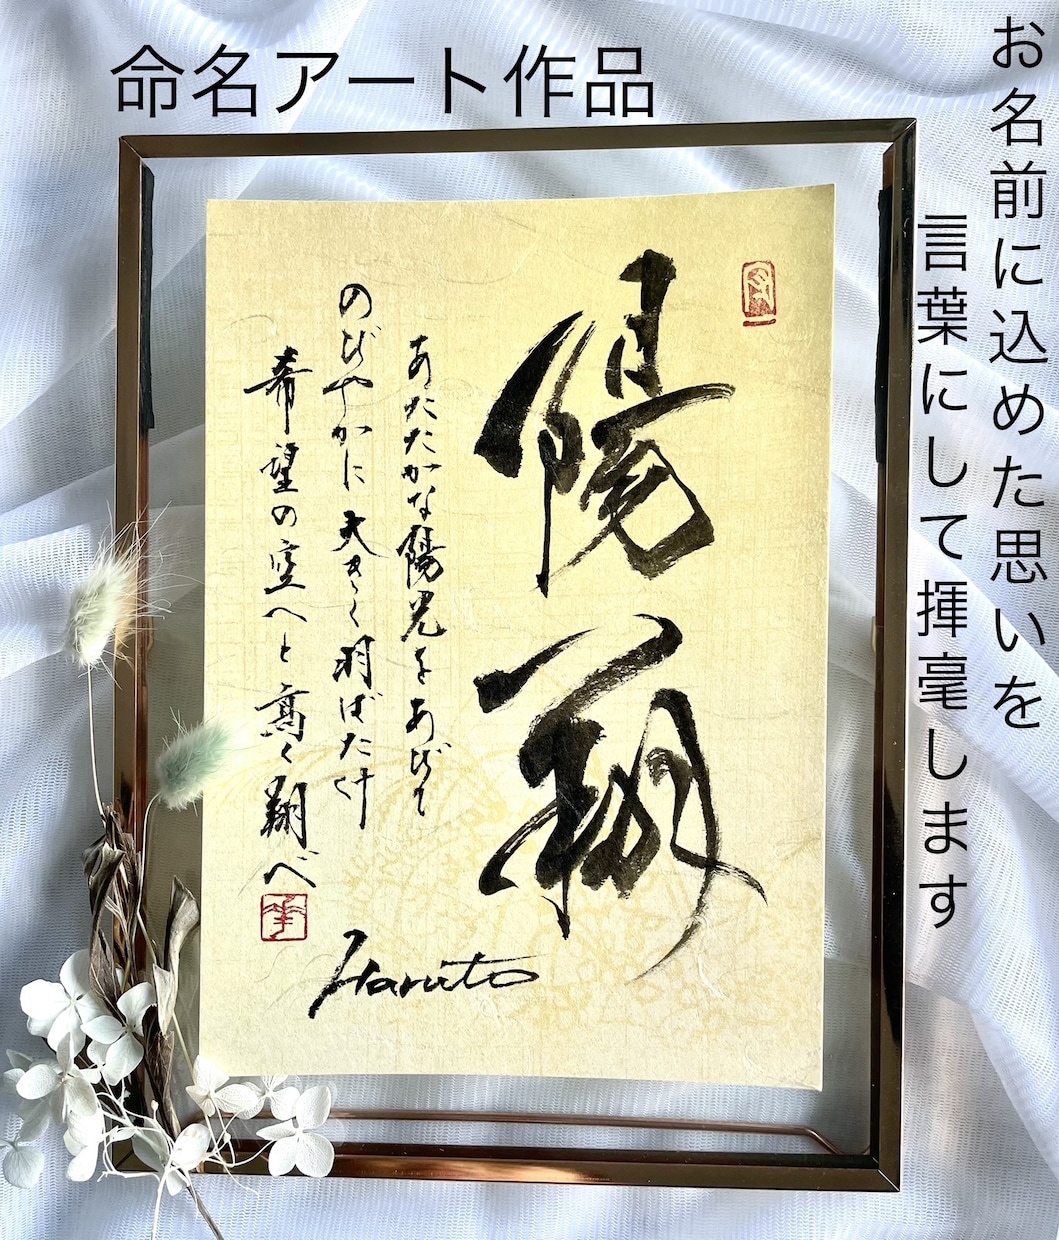 命名アート作品
お名前に込めた思いを
言葉にして拝毫します
陽翔
あたたかな陽光をあびて
のびやかに大きく羽ばたけ
希望の空へと高く翔べ
Haruto